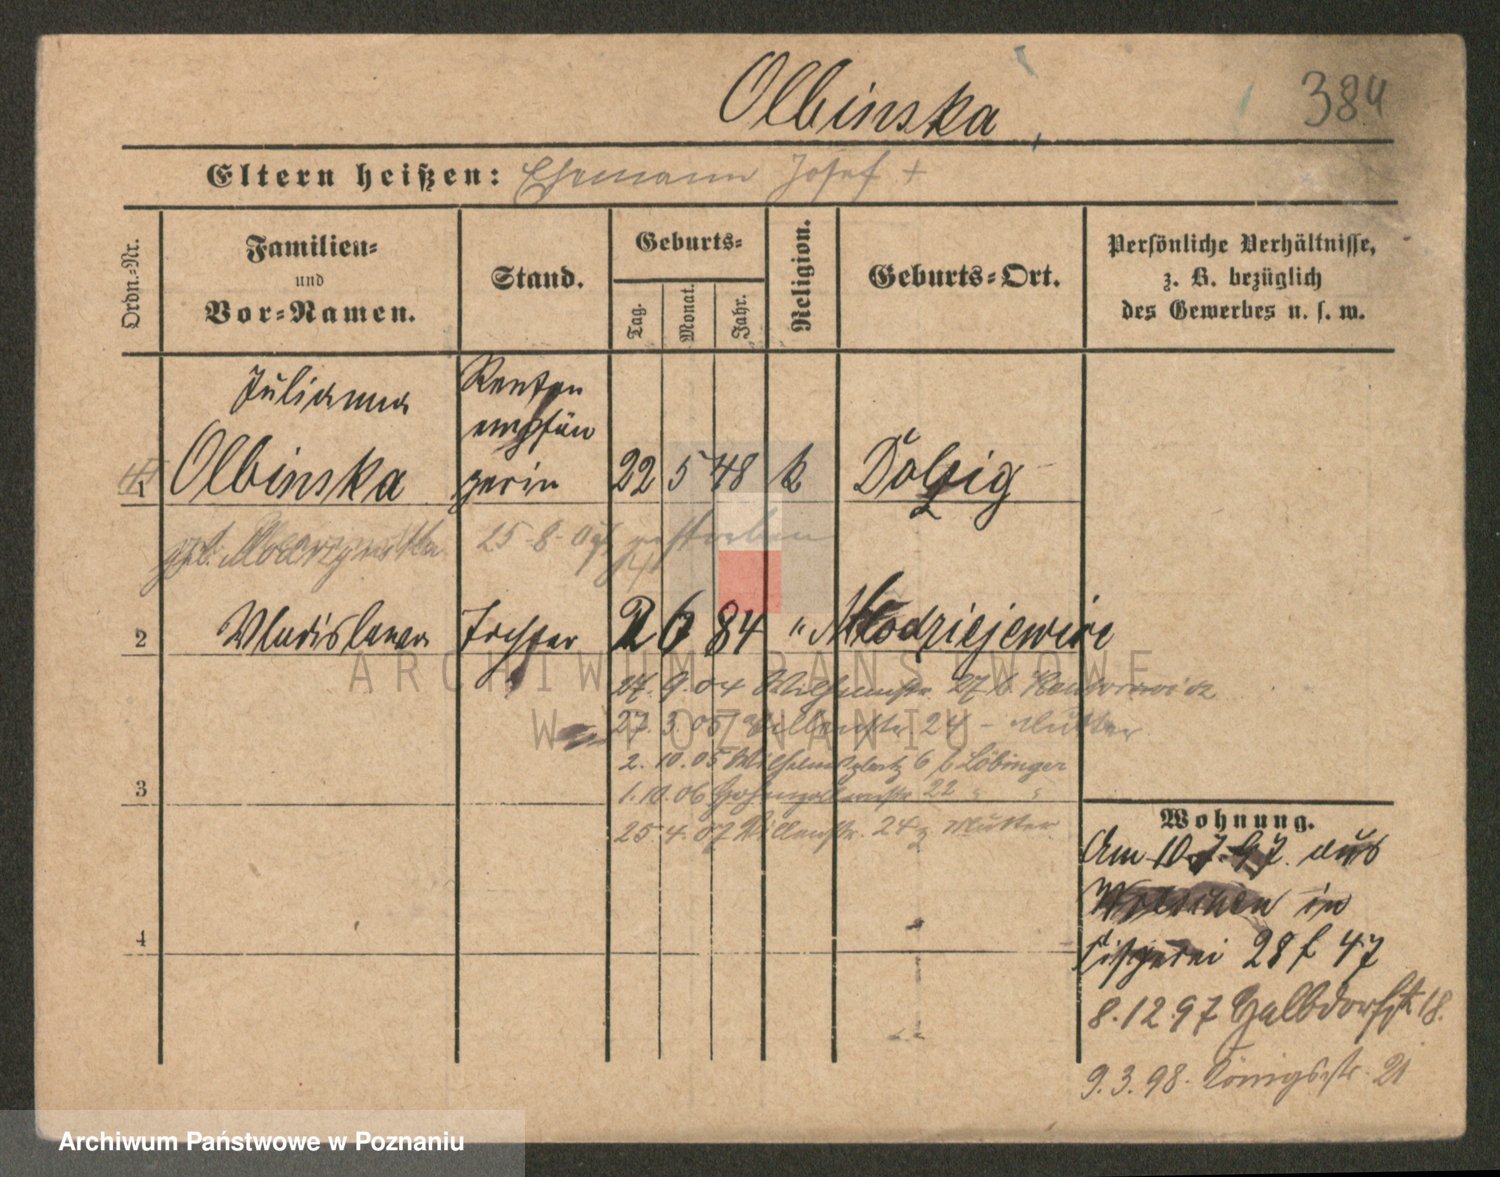 Olbinska
384
Eltern heißen: Ehemann Josef +
Ordn.-Nr.
Familien-
und
Vor-Namen.
Stand.
Geburts-
Tag.
Monat.
Jahr.
Religion.
Geburts-Ort.
Persönliche Verhältnisse,
z. B. bezüglich
des Gewerbes u. s. w.
Julianna
Renten
empfän
1 Olbinska gerin 22 5 48 k Dolzig
geb. 25-8-09 gestorben
2 Wladislawa Tochter 2 6 84 " Mlodziejewice
17. 9. 04 Wilhelmstr. 27 b.
27. 3. 05 Villenstr 24 - Mutter
2. 10. 05 Wilhelmsplatz 6 b Löbinger
3
1. 10. 06 Hohenzollernstr 22 " "
25. 4. 07 Villenstr. 24 z Mutter
4
Wohnung.
Am 10.7.97. aus
Wreschen in
Fischerei 28 b 47
8.12.97 Halbdorfstr 18.
9.3.98. Königsstr. 21
ARCHIWUM PAŃSTWOWE
W POZNANIU
Archiwum Państwowe w Poznaniu